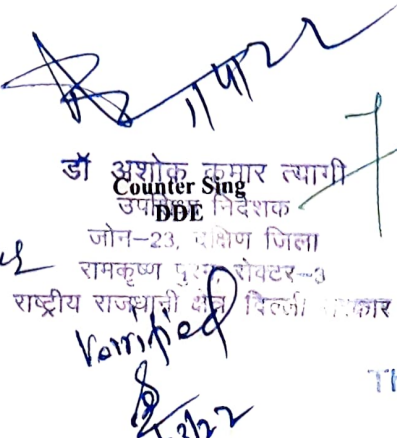 डॉ अशोक कुमार त्यागी
Counter Sing
निदेशक
DDE
जोन-23, दक्षिण जिला
रामकृष्ण पुरम, सेक्टर-3
राष्ट्रीय राजधानी क्षेत्र दिल्ली सरकार
Verified